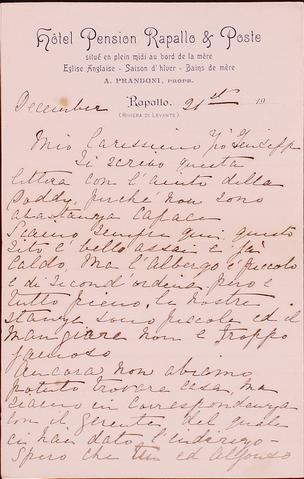 Hôtel Pension Rapallo & Poste
situé en plein midi au bord de la mère
Eglise Anglaise - Saison d'hiver - Bains de mère
A. PRANDONI, PROPR.
December Rapallo. 21st 19
(RIVIERA DI LEVANTE)
Mio Carissimo
Ti scrivo questa
lettera con l'aiuto della
Doddy, perchè non sono
abastanza capace
Siamo sempre qui, questo
sito è bello assai e fa
caldo, Ma l'Albergo è piccolo
e di second ordene però è
tutto pieno, le nostre
stanze sono piccole ed il
mangiare non è troppo
famoso
Ancora non abiamo
potuto trovare casa, ma
siamo in correspondenza
con il gerente del quale
ci hai dato l'indirizo-
Spero che ed Alfonso